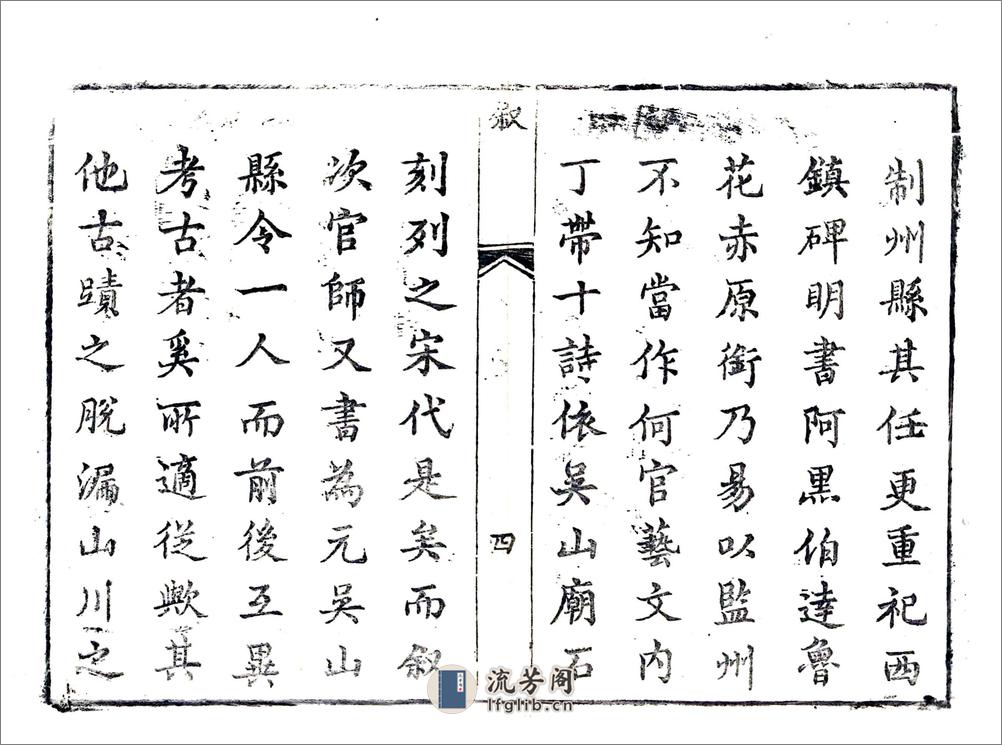 制州縣其任更重祀西
鎮碑明書阿黒伯逹魯
花赤原銜乃易以監州
不知當作何官藝文内
丁帶十詩依吳山廟石
叙
四
刻列之宋代是矣而叙
次官師又書為元吳山
縣令一人而前後互異
考古者奚所適從歟其
他古蹟之脫漏山川之
流芳阁
lfglib.cn